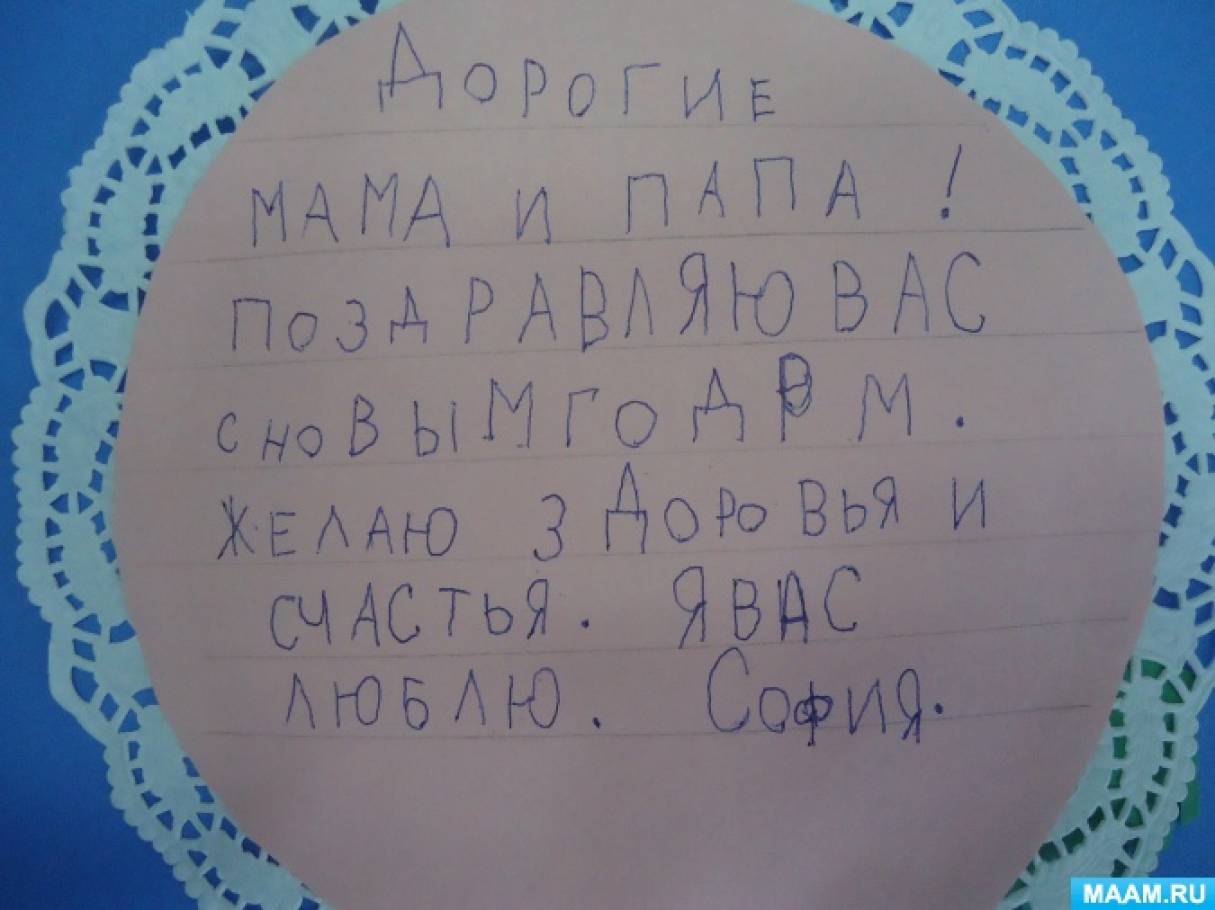 Дорогие
МАМА и ПАПА !
ПОЗДРАВЛЯЮ ВАС
с новЫМГОДРМ.
ЖЕЛАЮ ЗДОРОВЬЯ И
СЧАСТЬЯ. ЯВАС
ЛЮБЛЮ. София.
MAAM.RU